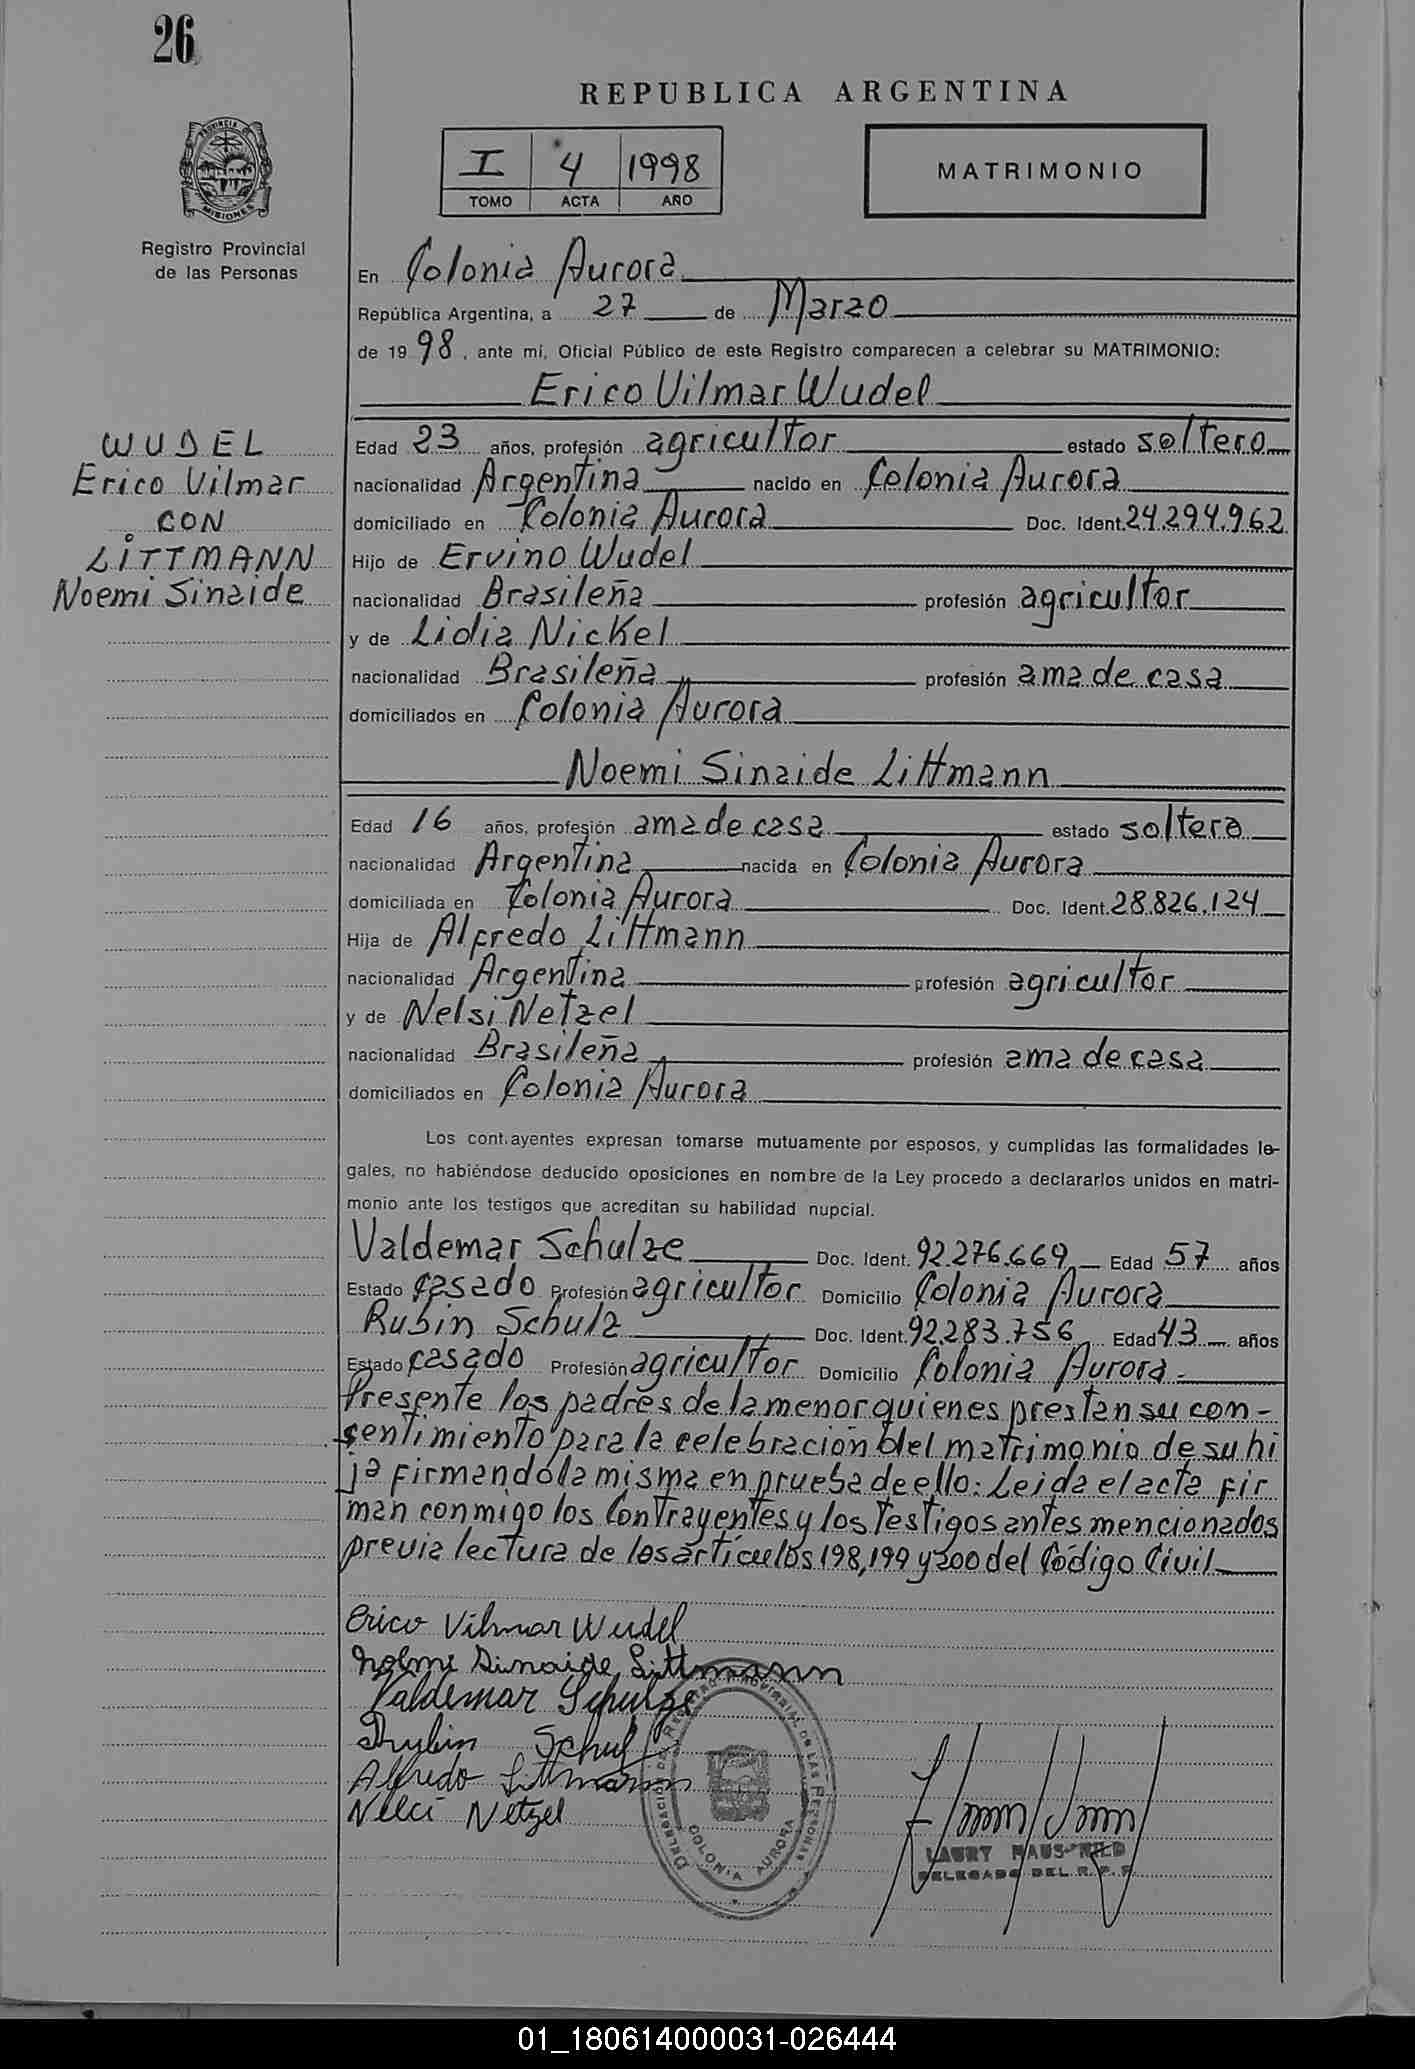 26
REPUBLICA ARGENTINA
I 4 1998
TOMO ACTA AÑO
MATRIMONIO
PROVINCIA DE
MISIONES
Registro Provincial
de las Personas
En Colonia Aurora
República Argentina, a 27 de Marzo
de 19 98, ante mi, Oficial Público de este Registro comparecen a celebrar su MATRIMONIO:
Erico Vilmar Wudel
WUDEL
Erico Vilmar
CON
LITTMANN
Noemi Sinaide
Edad 23 años, profesión agricultor estado soltero
nacionalidad Argentina nacido en Colonia Aurora
domiciliado en Colonia Aurora Doc. Ident. 24.294.962
Hijo de Ervino Wudel
nacionalidad Brasileña profesión agricultor
y de Lidia Nickel
nacionalidad Brasileña profesión ama de casa
domiciliados en Colonia Aurora
Noemi Sinaide Littmann
Edad 16 años, profesión ama de casa estado soltera
nacionalidad Argentina nacida en Colonia Aurora
domiciliada en Colonia Aurora Doc. Ident. 28.826.124
Hija de Alfredo Littmann
nacionalidad Argentina profesión agricultor
y de Nelsi Netzel
nacionalidad Brasileña profesión ama de casa
domiciliados en Colonia Aurora
Los cont.ayentes expresan tomarse mutuamente por esposos, y cumplidas las formalidades le-
gales, no habiéndose deducido oposiciones en nombre de la Ley procedo a declararlos unidos en matri-
monio ante los testigos que acreditan su habilidad nupcial.
Valdemar Schulze Doc. Ident. 92.276.669 Edad 57 años
Estado casado Profesión agricultor Domicilio Colonia Aurora
Rubin Schulz Doc. Ident. 92.283.756 Edad 43 años
Estado casado Profesión agricultor Domicilio Colonia Aurora
Presente los padres de la menor quienes prestan su con-
sentimiento para la celebración del matrimonio de su hi
ja firmando la misma en prueba de ello: Leida el acta fir
man conmigo los Contrayentes y los Testigos antes mencionados
previa lectura de los artículos 198,199 y 200 del Código Civil
Erico Vilmar Wudel
Sinaide Littmann
Valdemar Schulze
Rubin Schulz
Alfredo Littmann
Nelci Netzel
DELEGACIÓN DEL REGISTRO PROVINCIAL DE LAS PERSONAS
COLONIA AURORA
LAURY
DELEGADO DEL R. P. P.
01_180614000031-026444